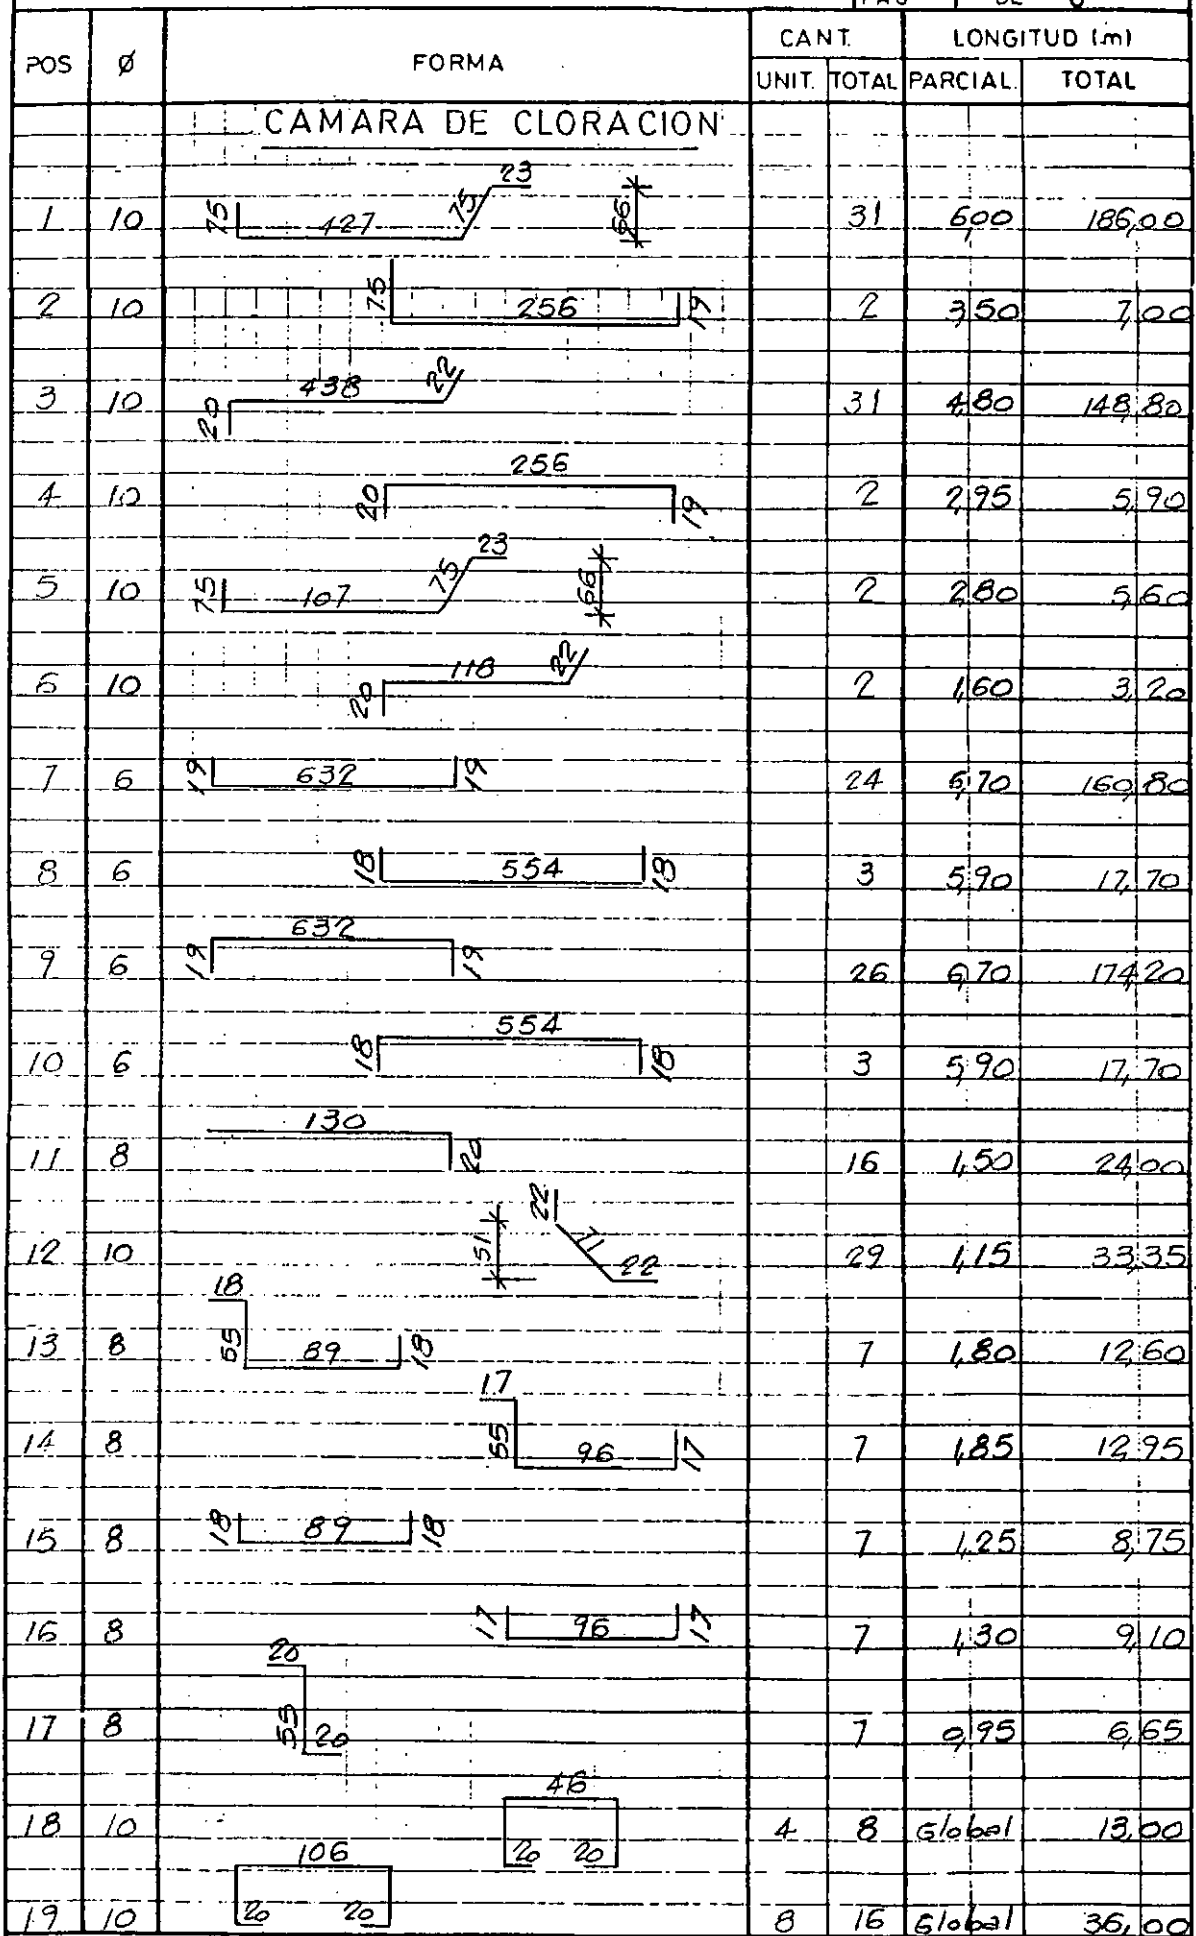 PAG DE
POS Ø FORMA CANT. LONGITUD (m)
UNIT. TOTAL PARCIAL. TOTAL
CAMARA DE CLORACION
1 10 75 427 75 23 66 31 6,00 186,00
2 10 75 256 19 2 3,50 7,00
3 10 20 438 22 31 4,80 148,80
4 10 20 256 19 2 2,95 5,90
5 10 75 107 75 23 66 2 2,80 5,60
6 10 20 118 22 2 1,60 3,20
7 6 19 632 19 24 6,70 160,80
8 6 18 554 18 3 5,90 17,70
9 6 19 632 19 26 6,70 174,20
10 6 18 554 18 3 5,90 17,70
11 8 130 20 16 1,50 24,00
12 10 51 22 71 22 29 1,15 33,35
13 8 18 55 89 18 7 1,80 12,60
14 8 17 55 96 17 7 1,85 12,95
15 8 18 89 18 7 1,25 8,75
16 8 17 96 17 7 1,30 9,10
17 8 20 55 20 7 0,95 6,65
18 10 46 20 20 4 8 Global 13,00
19 10 106 20 20 8 16 Global 36,00